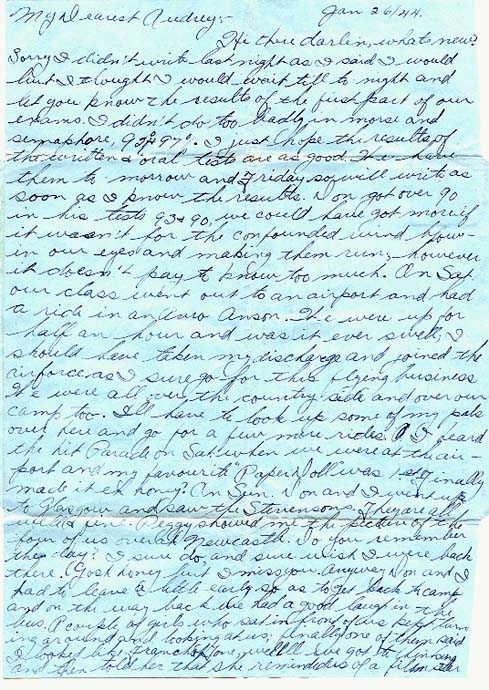 My Dearest Audrey:- Jan 26/44.
Hi there darlin, whats new?
Sorry I didn't write last night as I said I would
but I thought I would wait till to night and
let you know the results of the first part of our
exams. I didn't do too badly in morse and
semaphore, 92 & 97. I just hope the results of
the written & oral tests are as good. We have
them to morrow and Friday so will write as
soon as I know the results. Don got over 90
in his tests 93 & 90, we could have got more if
it wasn't for the confounded wind blow-
in our eyes and making them run, however
it doesn't pay to know too much. On Sat.
our class went out to an airport and had
a ride in an Avro Anson. We were up for
half an hour and was it ever swell, I
should have taken my discharge and joined the
airforce as I sure go for this flying business
We were all over the country side and over our
camp too. I'll have to look up some of my pals
over here and go for a few more rides. I heard
the hit Parade on Sat. when we were at the air-
port and my favourite "Paper Doll" was 1st finally
made it eh honey? On Sun. Don and I went up
to Glasgow and saw the Stevensons. They are all
well & fine. Peggy showed me the picture of the
four of us over at Newcastle. Do you remember
the day? I sure do, and sure wish I were back
there. Gosh honey but I miss you. Anyway Don and I
had to leave a little early so as to get back to camp
and on the way back we had a good laugh in the
bus. A couple of girls who sat in front of us kept turn
ing around and looking at us; finally one of them said
I looked like Franchot Tone, well we got to thinking
and then told her that she reminded us of a film star